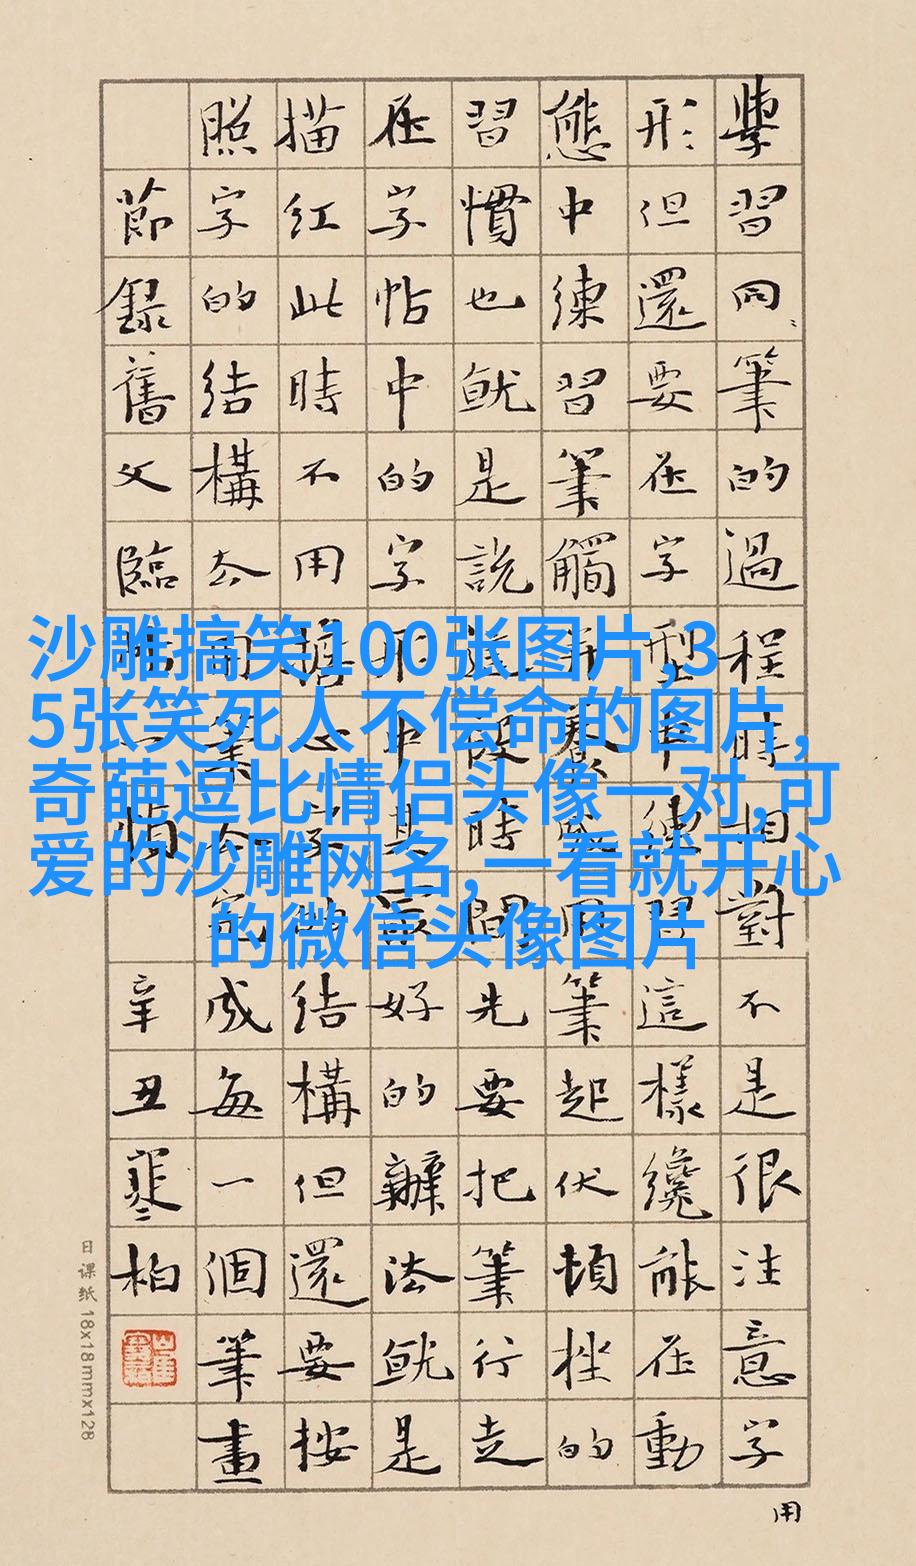 學習同筆的過程時相對不是很注意字
形但還要在字型中練習這樣纔能在動
態中練習筆觸并養成用筆起伏頓挫的
習慣也就是說這段時間先要把筆行走
在字帖中的字形中其最好的辦法就是
描紅此時不用擔心字的結構但還要按
照字的結構去用筆完成每一個筆畫
節錄舊文臨一辛丑寒柏
用
日课纸 18x18mmx128
沙雕搞笑100张图片,3
5张笑死人不偿命的图片,
奇葩逗比情侣头像一对,可
爱的沙雕网名,一看就开心
的微信头像图片